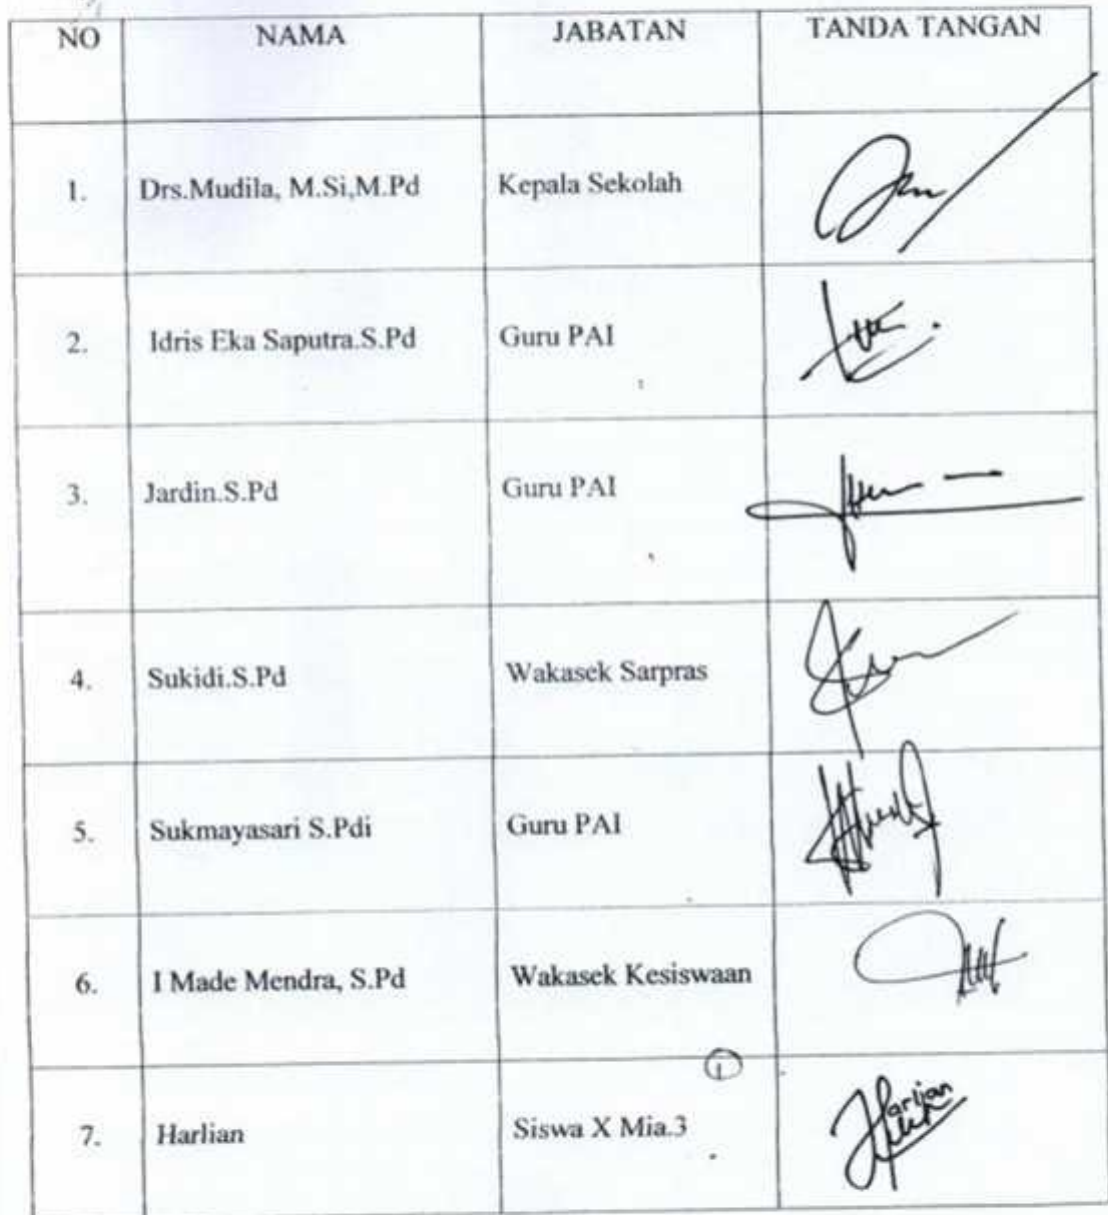 NO NAMA JABATAN TANDA TANGAN
1. Drs.Mudila, M.Si,M.Pd Kepala Sekolah
2. Idris Eka Saputra.S.Pd Guru PAI
3. Jardin.S.Pd Guru PAI
4. Sukidi.S.Pd Wakasek Sarpras
5. Sukmayasari S.Pdi Guru PAI
6. I Made Mendra, S.Pd Wakasek Kesiswaan
7. Harlian Siswa X Mia.3 Harlian